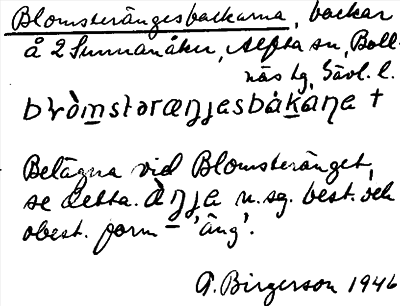 Blomsterängesbackarna, backar
å 2 Sunnanåker, Alfta sn, Boll-
näs tg, Gävl. l.
bḷòm̲stəræŋjesbåk̲aṇa †
Belägna vid Blomsteränget,
se detta. àŋja n. sg. best. och
obest. form – 'äng'.
G. Birgerson 1946